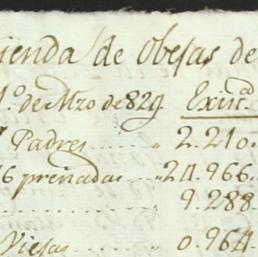 ienda de Obejas de
1.º de Mzo de 829 Exist.ª
Padres 2.210.
6 preñadas 24.966.
9.288
Viejas 0.964